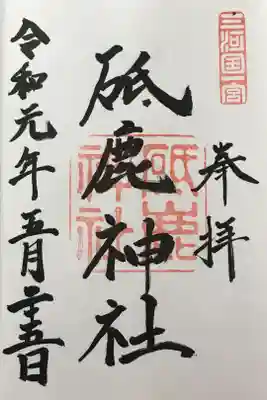 三河国一宮
奉拝
砥鹿神社
砥鹿神社
令和元年五月二十五日